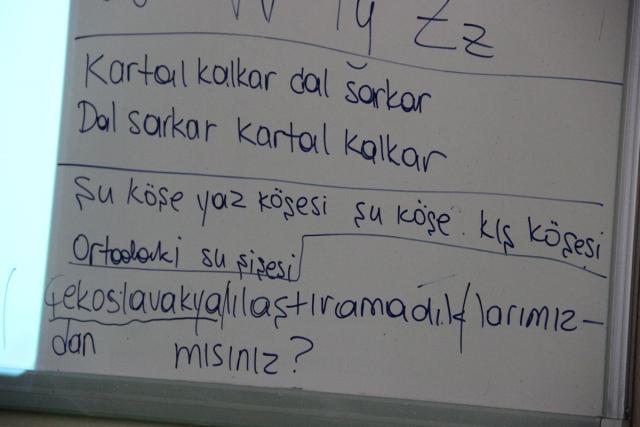 Yy Zz
Kartal kalkar dal sarkar
Dal sarkar kartal kalkar
Şu köşe yaz köşesi şu köşe kış köşesi
Ortadaki su şişesi
Çekoslavakyalılaştıramadıklarımız-
dan mısınız?